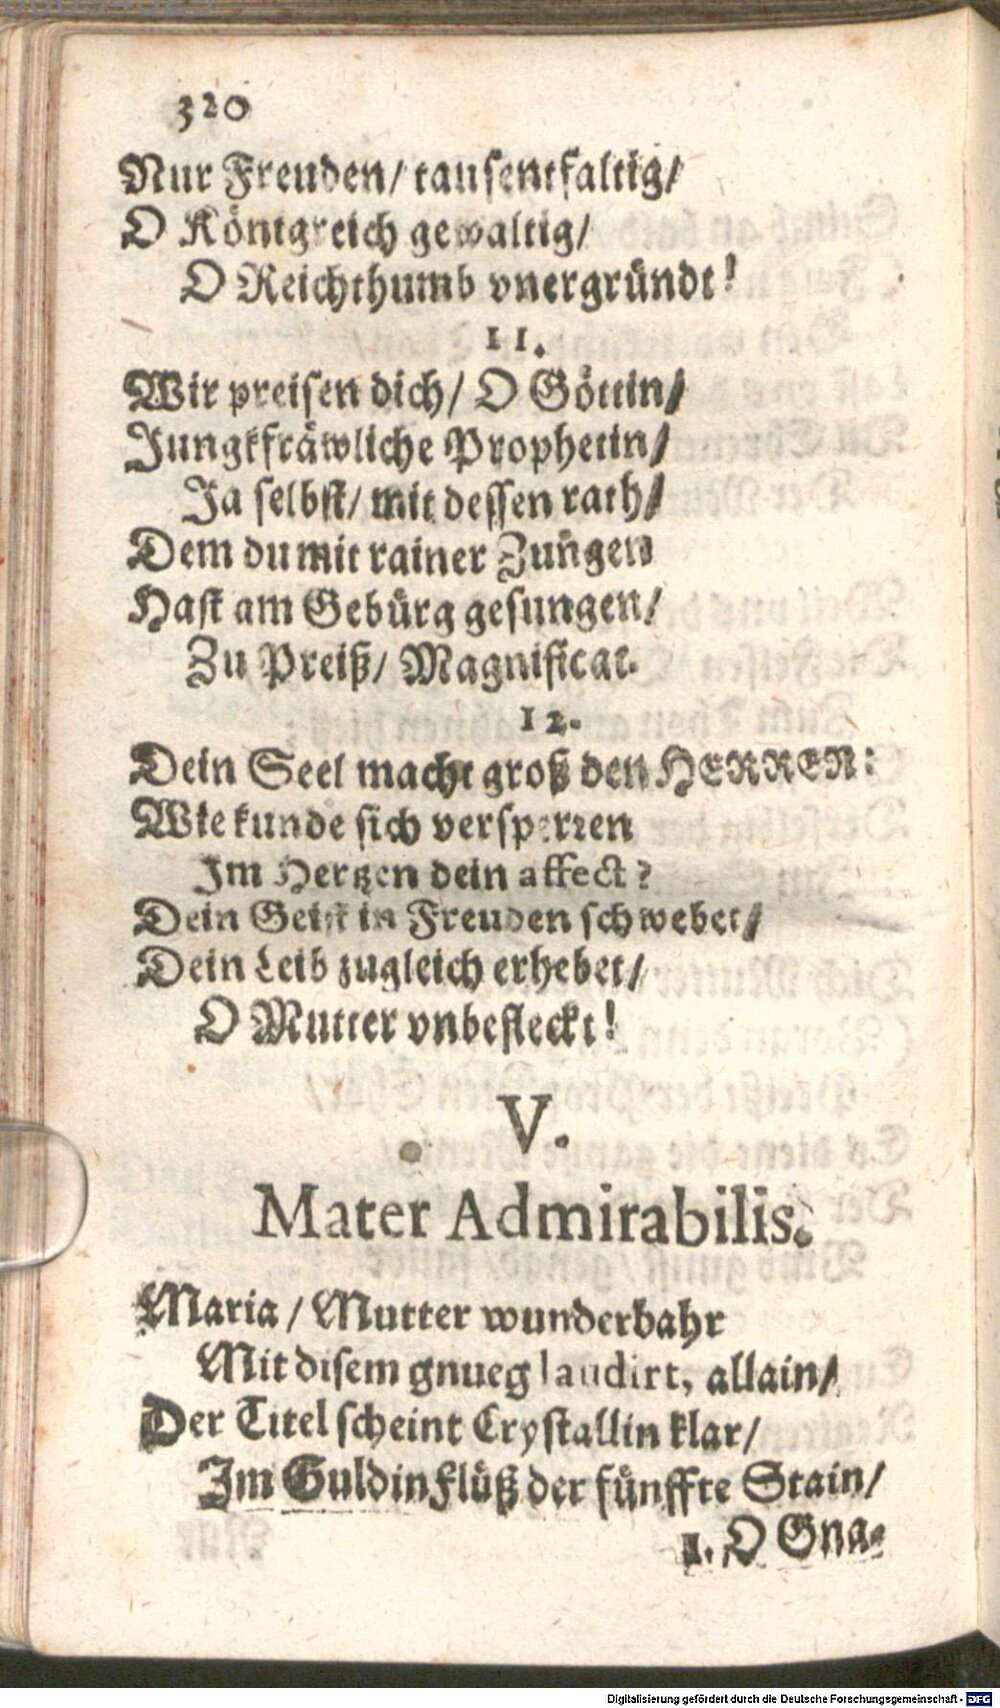 320
Nur Freuden/ tausentfaltig/
O Königreich gewaltig/
O Reichthumb vnergründt!
11.
Wir preisen dich/ O Göttin/
Jungkfräwliche Prophetin/
Ja selbst/ mit dessen rath/
Dem du mit rainer Zungen
Hast am Gebürg gesungen/
Zu Preiß/ Magnificat.
12.
Dein Seel macht groß den HERREN:
Wie kunde sich versperren
Im Hertzen dein affect?
Dein Geist in Freuden schwebet/
Dein Leib zugleich erhebet/
O Mutter vnbefleckt!
V.
Mater Admirabilis.
Maria/ Mutter wunderbahr
Mit disem gnueg laudirt, allain/
Der Titel scheint Crystallin klar/
Im Guldin Flüß der fünffte Stain/
1. O Gna-
Digitalisierung gefördert durch die Deutsche Forschungsgemeinschaft - DFG